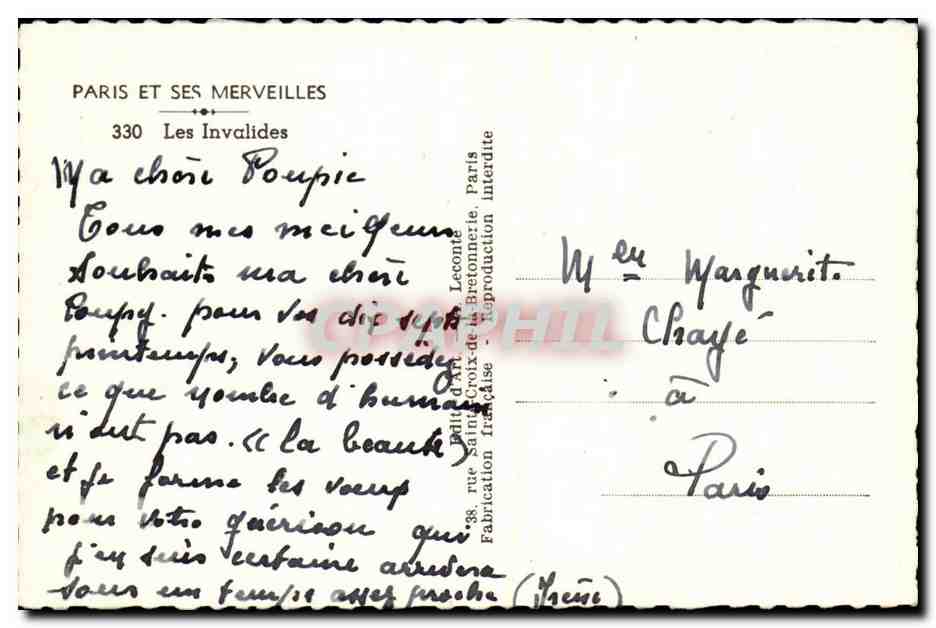 PARIS ET SES MERVEILLES
330 Les Invalides
Ma chère Poupie
Tous mes meilleurs
souhaits ma chère
Poupy. pour vos dix sept
printemps, vous possédez
ce que nombre d'humains
n'ont pas. « la beauté »
et je forme les vœux
pour votre guérison qui
j'en suis certaine arrivera
sous un temps assez proche (Irène)
Edit. d'Art Leconte
38, rue Sainte-Croix-de-la-Bretonnerie, Paris
Fabrication française - Reproduction interdite
CPAPHIL
Mer Marguerite
Chayé
à
Paris